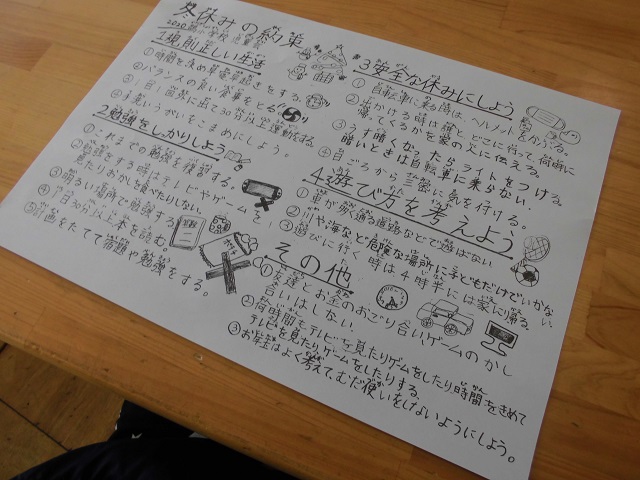 冬休みの約束
2020
1規則正しい生活
①時間を決め早寝早起きをする。
②バランスの良い食事をとる
③一日一回外に出て30分以上運動する。
④手洗いうがいをこまめにしよう。
2勉強をしっかりしよう
①これまでの勉強を復習する。
②勉強をする時はテレビやゲームを
見たりおかしを食べたりしない。
③明るい場所で勉強する。
④一日30分以上本を読む。
⑤計画をたてて宿題や勉強をする。
3安全な休みにしよう
①自転車に乗る時は、ヘルメットをかぶる。
②出かける時は誰と、どこに行って、何時に
帰ってくるかを家の人に伝える。
③うす暗くなったらライトをつける。
暗いときは自転車に乗らない。
④日ごろから三密に気を付ける。
4遊び方を考えよう
①車が通る道路などで遊ばない
②川や海など危険な場所に子どもだけでいかない。
③遊びに行く時は4時半には家に帰る。
その他
①友達とお金のおごり合い、ゲームのかし
合いはしない。
②何時間テレビを見たりゲームをしたり時間をきめて
テレビを見たり、ゲームをしたりする。
③お年玉はよく考えて、むだ使いをしないようにしよう。